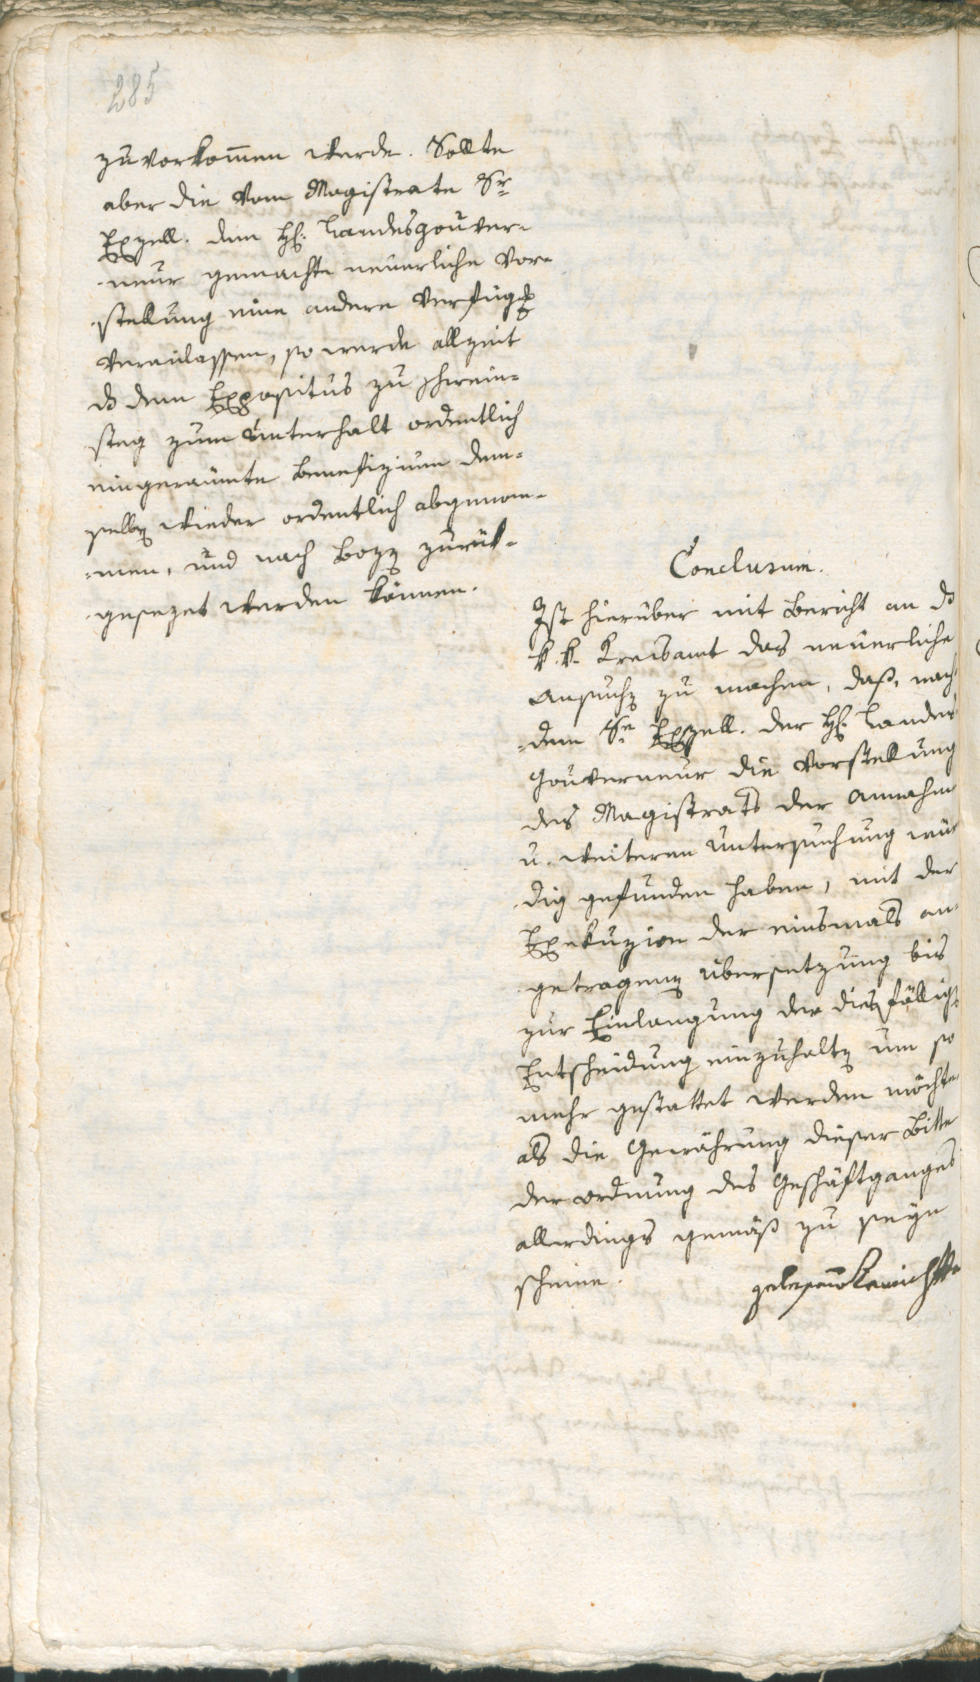 285
zuvorkom̄en werde. Sollte
aber die vom Magistrate Sr
Exzell. dem H. Landesgouver-
neur gemachte neuerliche Vor-
stellung eine andere Verfügg
veranlassen, so werde allzeit
ds dem Expositus zu
steg zum Unterhalt ordentlich
eingeraumte Benefizium dem-
selben wieder ordentlich abgenom-
-men, und nach Bozen zurük-
gesezet werden können.
Conclusum.
Ist hierüber mit Bericht an ds
k. k. Kreisamt das neuerliche
Ansuchen zu machen, daß, nach
-dem Se Exzell. der H. Landes
Gouverneur die Vorstellung
des Magistrats der Annahm
u. weiteren Untersuchung wür
dig gefunden haben, mit der
Exekuzion der einsmals an-
getragenen übersetzung bis
zur Einlangung der diesfällig
Entscheidung einzuhalten um so
mehr gestattet werden möchte
als die Gewährung dieser Bitte
der ordnung des Geschäftganges
allerdings gemäß zu seyn
scheine.